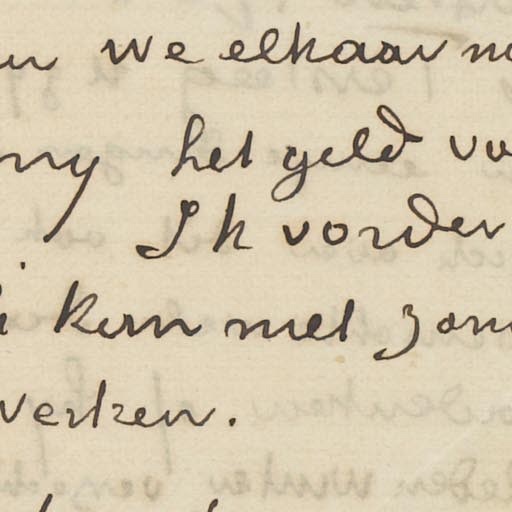 we elkaar
my het geld
Ik vorder
kan niet zon
werken.